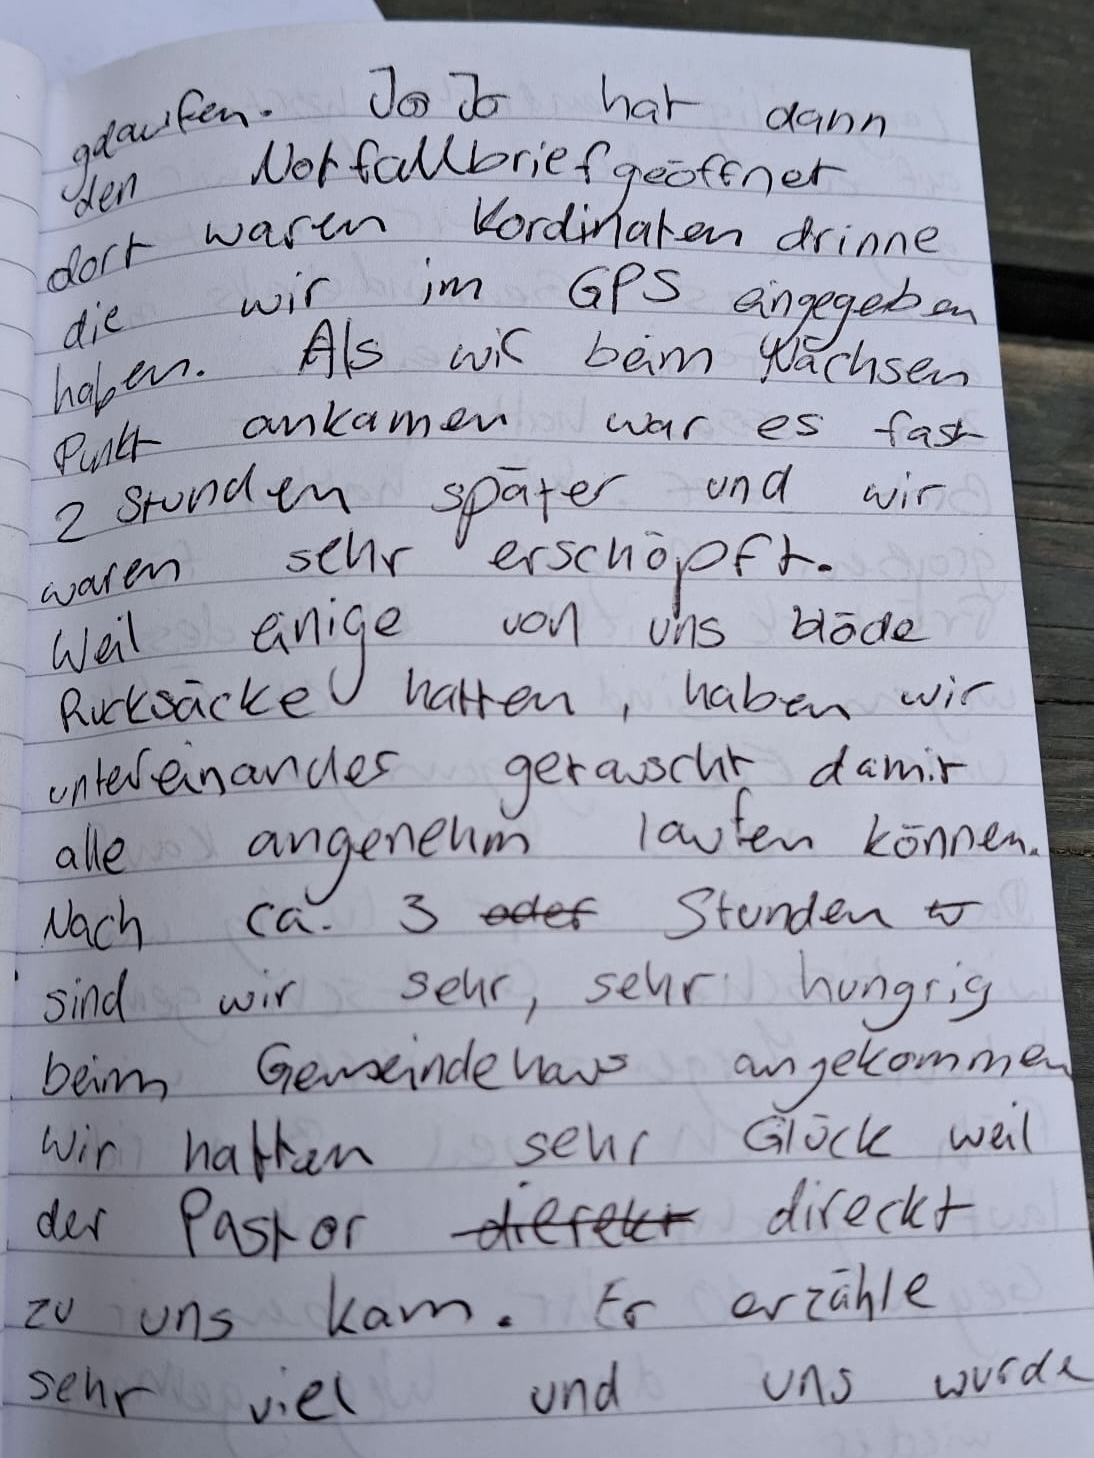 gelaufen. JoJo hat dann
den Notfallbrief geöffnet
dort waren Kordinaten drinne
die wir im GPS eingegeben
haben. Als wir beim Nächsen
Punkt ankamen war es fast
2 Stunden später und wir
waren sehr erschöpft.
Weil einige von uns blöde
Rucksäcke hatten, haben wir
untereinander getauscht damit
alle angenehm laufen können.
Nach ca. 3 oder Stunden w
sind wir sehr, sehr hungrig
beim Gemeindehaus angekommen
wir hatten sehr Glück weil
der Pastor dierekt direckt
zu uns kam. Er erzähle
sehr viel und uns wurde